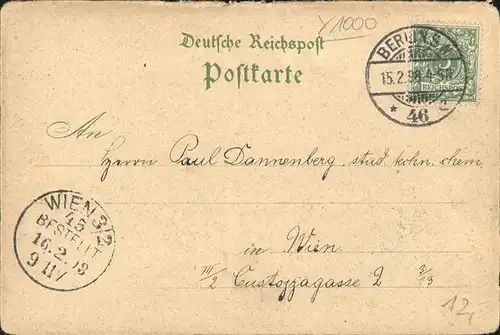 Y1000
Deutsche Reichspost
Postkarte
BERLIN S.W.
15.2.98.4-5N.
* 46 c
REICHSPOST
An
Herrn Paul Dannenberg, stud. techn. chem.
in Wien
III/2 Custozzagasse 2 3/13
WIEN 3/2
45
BESTELLT
16.2.98
9 11V
12,-